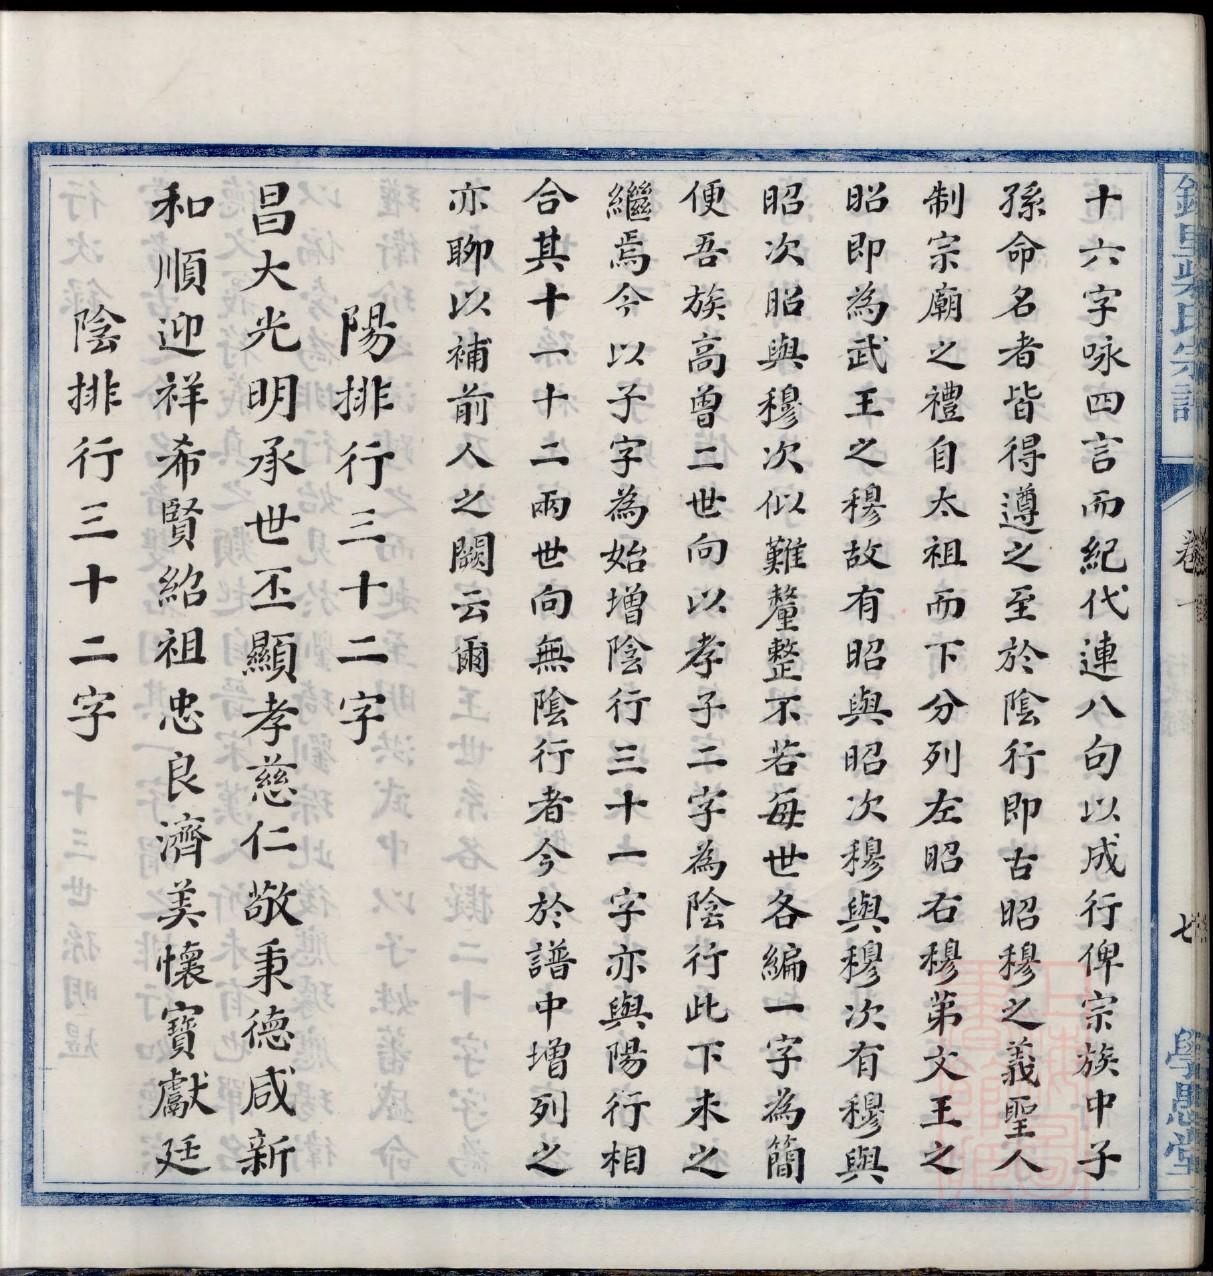 十六字咏四言而紀代連八句以成行俾宗族中子
孫命名者皆得遵之至於陰行即古昭穆之義聖人
制宗廟之禮自太祖而下分列左昭右穆第文王之
昭即為武王之穆故有昭與昭次穆與穆次有穆與
昭次昭與穆次似難釐整不若每世各編一字為簡
便吾族高曾二世向以孝子二字為陰行此下未之
繼焉今以子字為始增陰行三十一字亦與陽行相
合其十一十二兩世向無陰行者今於譜中增列之
亦聊以補前人之闕云爾
陽排行三十二字
昌大光明承世丕顯孝慈仁敬秉德咸新
和順迎祥希賢紹祖忠良濟美懷寶獻廷
陰排行三十二字
氏宗譜
卷一
七
學愚堂